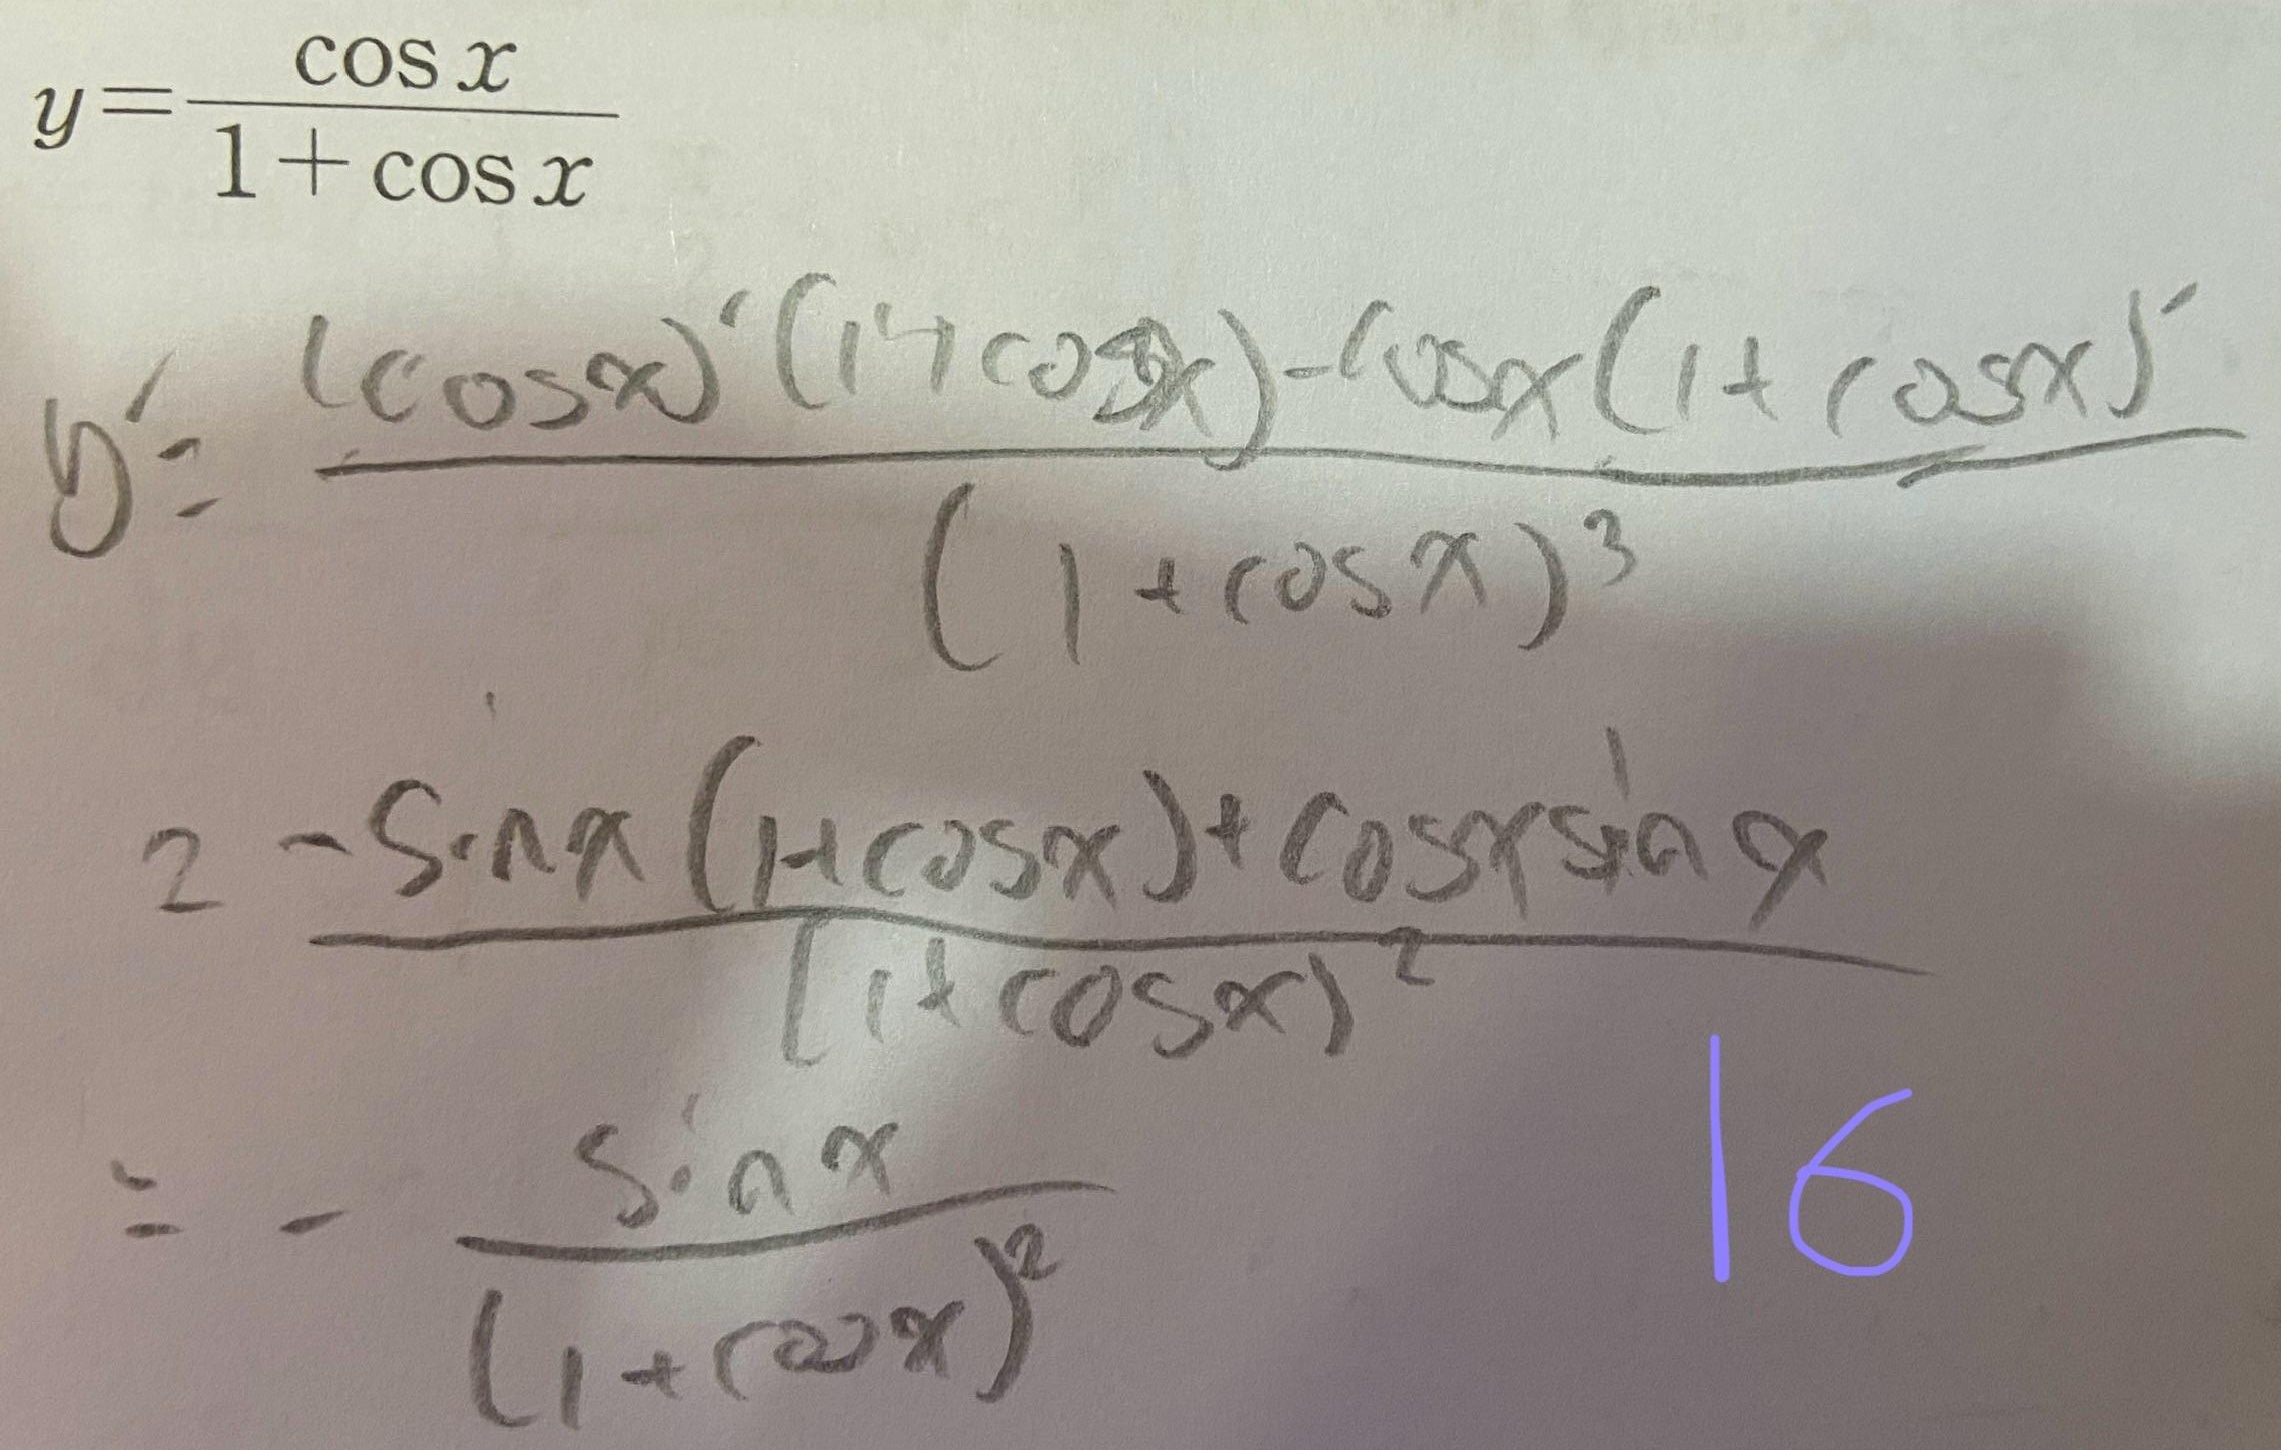 y = cos x / (1 + cos x)
y' = ((cos x)' (1 + cos x) - cos x (1 + cos x)') / (1 + cos x)^3
= (-sin x (1 + cos x) + cos x sin x) / (1 + cos x)^2
= - sin x / (1 + cos x)^2
16